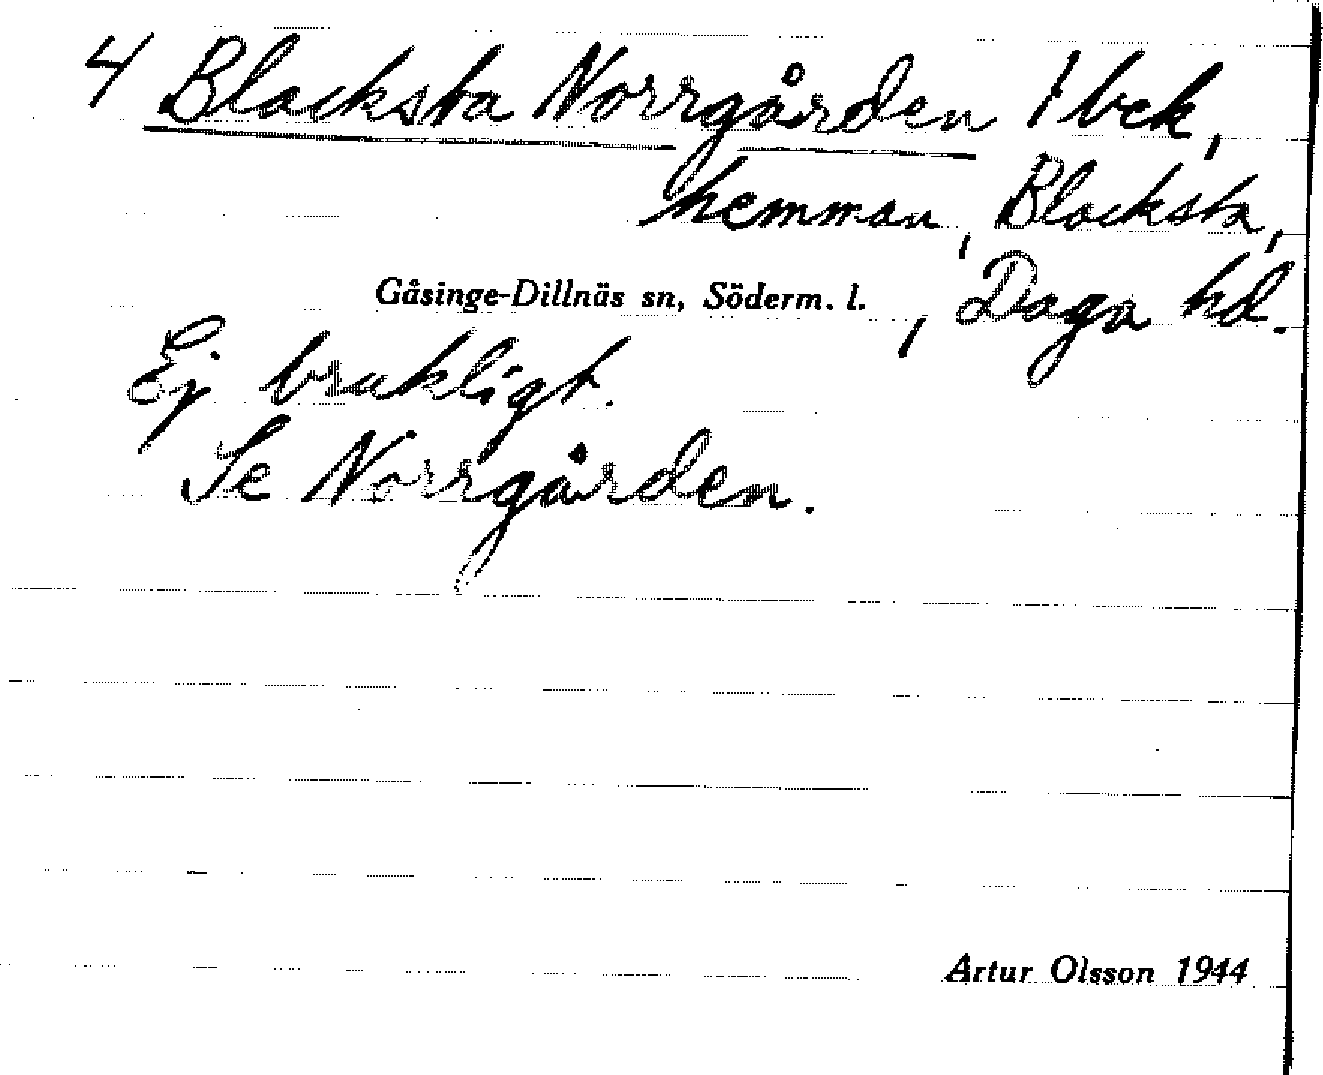 4 Blacksta Norrgården / bek,
hemman, Blacksta,
Gåsinge-Dillnäs sn, Söderm. l. , Daga hd.
Ej brukligt.
Se Norrgården.
Artur Olsson 1944